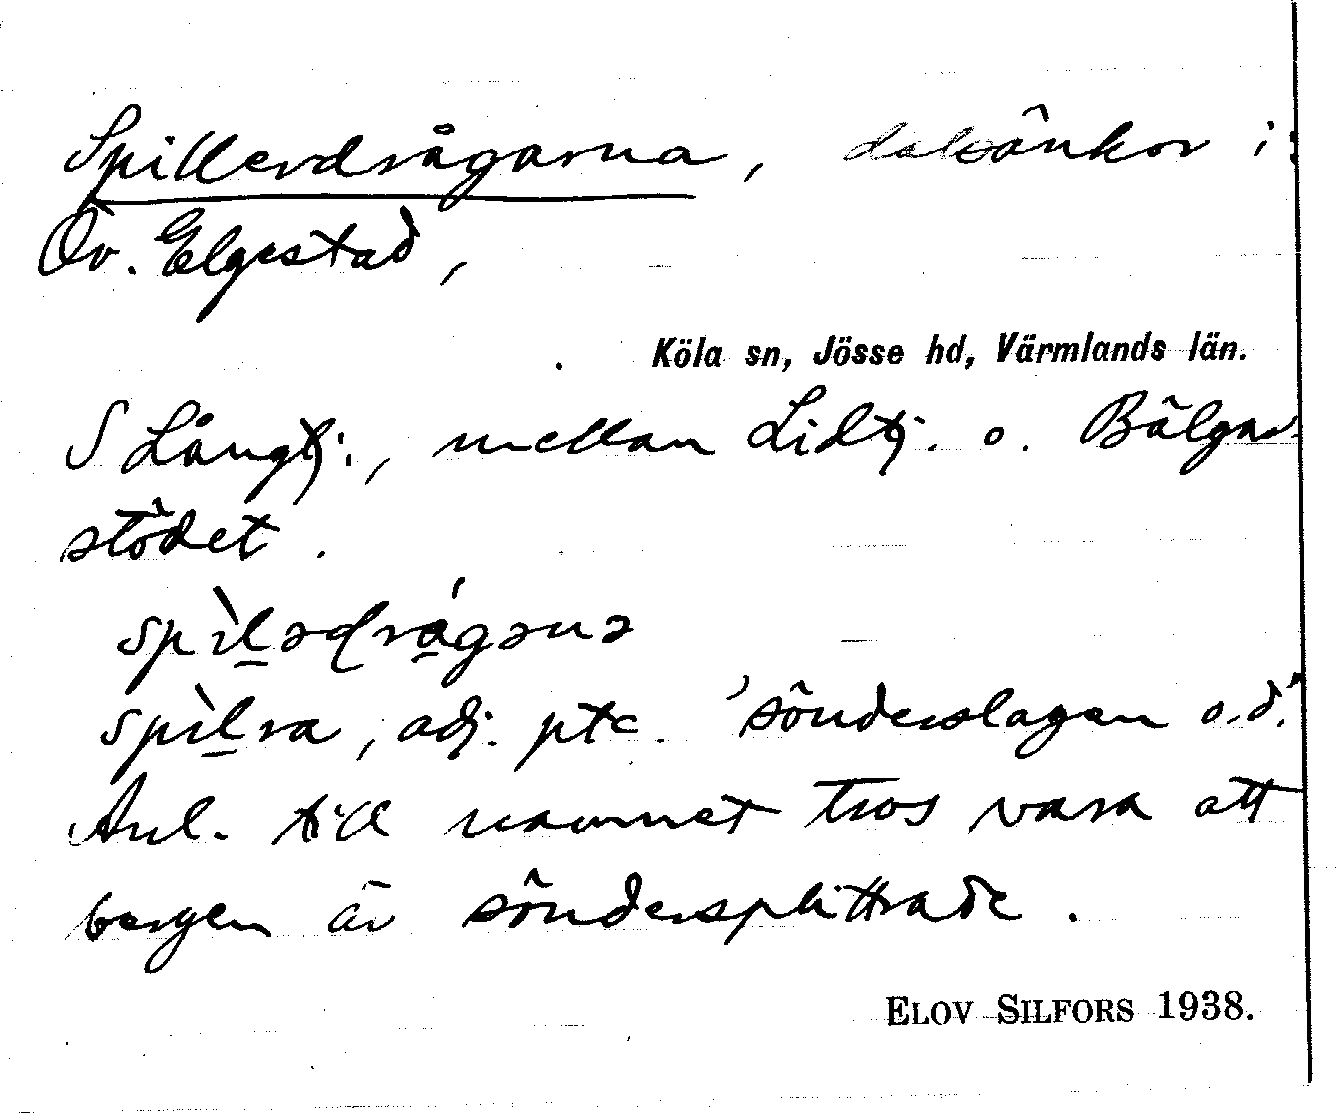 Spillerdrågarna, dalsänkor i:
Öv. Elgestad,
Köla sn, Jösse hd, Värmlands län.
S Långtj:, mellan Lidtj. o. Bälgar
stödet.
spìl̠ədrá̠gəna
spìl̠ra, adj. ptc. 'sönderslagen o.d.'
Anl. till namnet tros vara att
bergen är söndersplittrade.
ELOV SILFORS 1938.